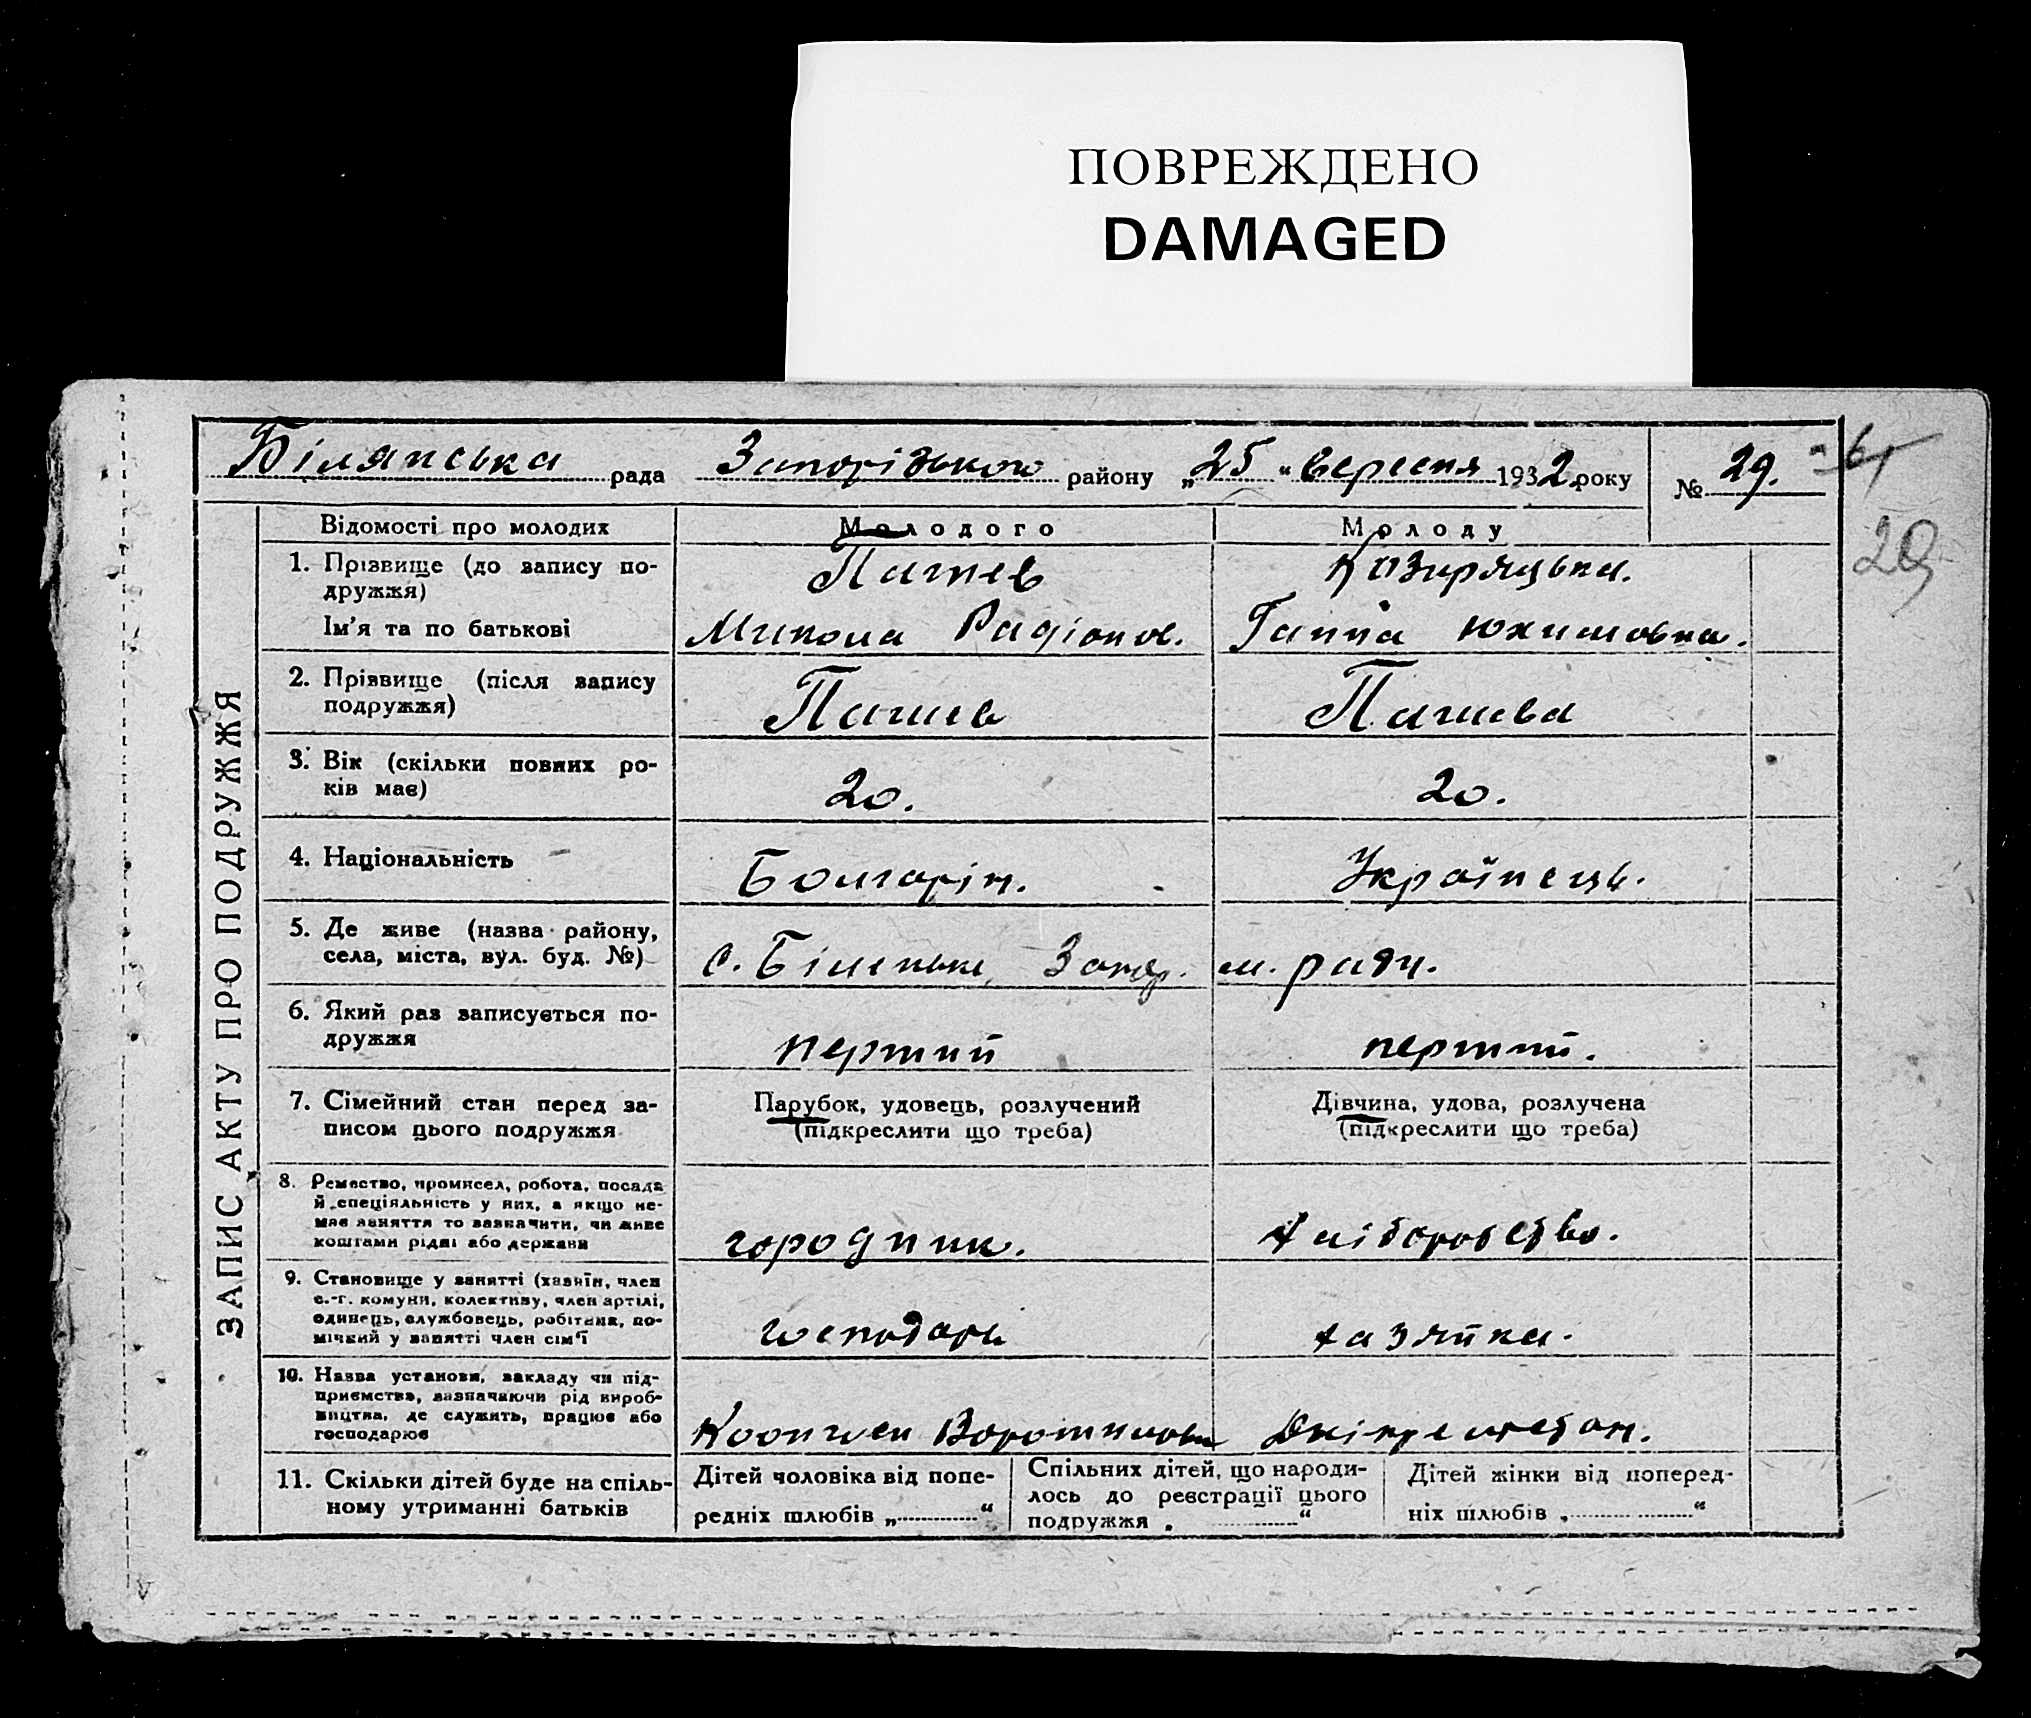 ПОВРЕЖДЕНО
DAMAGED
Білянська рада Запорізького району „25“ вересня 1932 року № 29.
29
ЗАПИС АКТУ ПРО ПОДРУЖЖЯ
Відомості про молодих Молодого Молоду
1. Прізвище (до запису по-
дружжя)
Ім'я та по батькові Микола Радіонов. Ганна Юхимовна.
2. Прізвище (після запису
подружжя)
3. Вік (скільки повних ро-
ків має) 20. 20.
4. Національність Болгарін. Українець.
5. Де живе (назва району,
села, міста, вул. буд. №) с. Біленьке, Запор. м. ради.
6. Який раз записується по-
дружжя перший перший.
7. Сімейний стан перед за-
писом цього подружжя
Парубок, удовець, розлучений
(підкреслити що треба)
Дівчина, удова, розлучена
(підкреслити що треба)
8. Ремество, промисел, робота, посада
й спеціяльність у них, а якщо не-
має заняття то зазначити, чи живе
коштами рідні або держави городник. хліборобство.
9. Становище у занятті (хазяїн, член
с.-г. комуни, колективу, член артілі,
одинець, службовець, робітник, по-
мічний у занятті член сім'ї господарь хазяйка.
10. Назва установи, закладу чи під-
приємства, зазначаючи рід вироб-
ництва, де служить, працює або
господарює Коопхоз Ворошилова
11. Скільки дітей буде на спіль-
ному утриманні батьків
Дітей чоловіка від попе-
редніх шлюбів „ “
Спільних дітей, що народи-
лось до реєстрації цього
подружжя „ “
Дітей жінки від поперед-
ніх шлюбів „ “